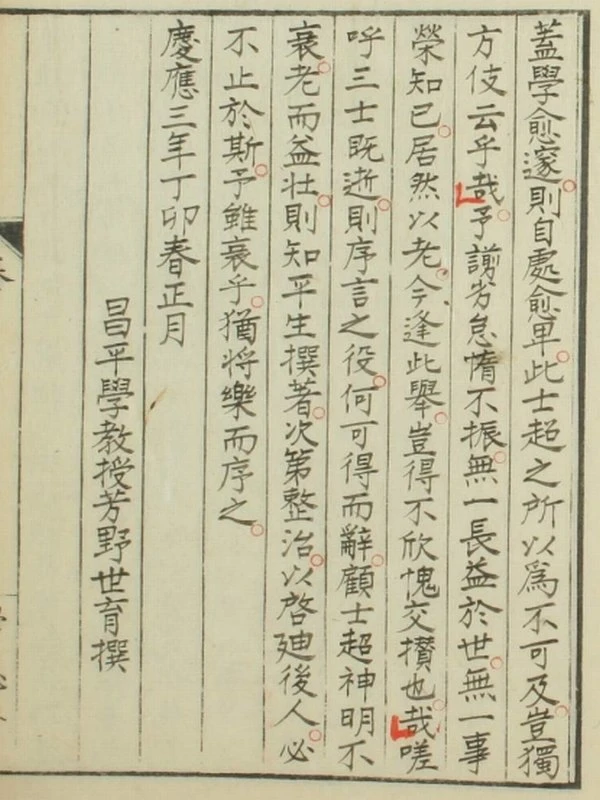 蓋學愈邃則自處愈卑此士超之所以為不可及豈獨
方伎云乎哉予謭劣怠惰不振無一長益於世無一事
榮知己居然以老今逢此舉豈得不欣愧交攢也哉嗟
呼三士既逝則序言之役何可得而辭顧士超神明不
衰老而益壯則知平生撰著次第整治以啓廸後人必
不止於斯予雖衰乎猶將樂而序之
慶應三年丁卯春正月
昌平學教授芳野世育撰